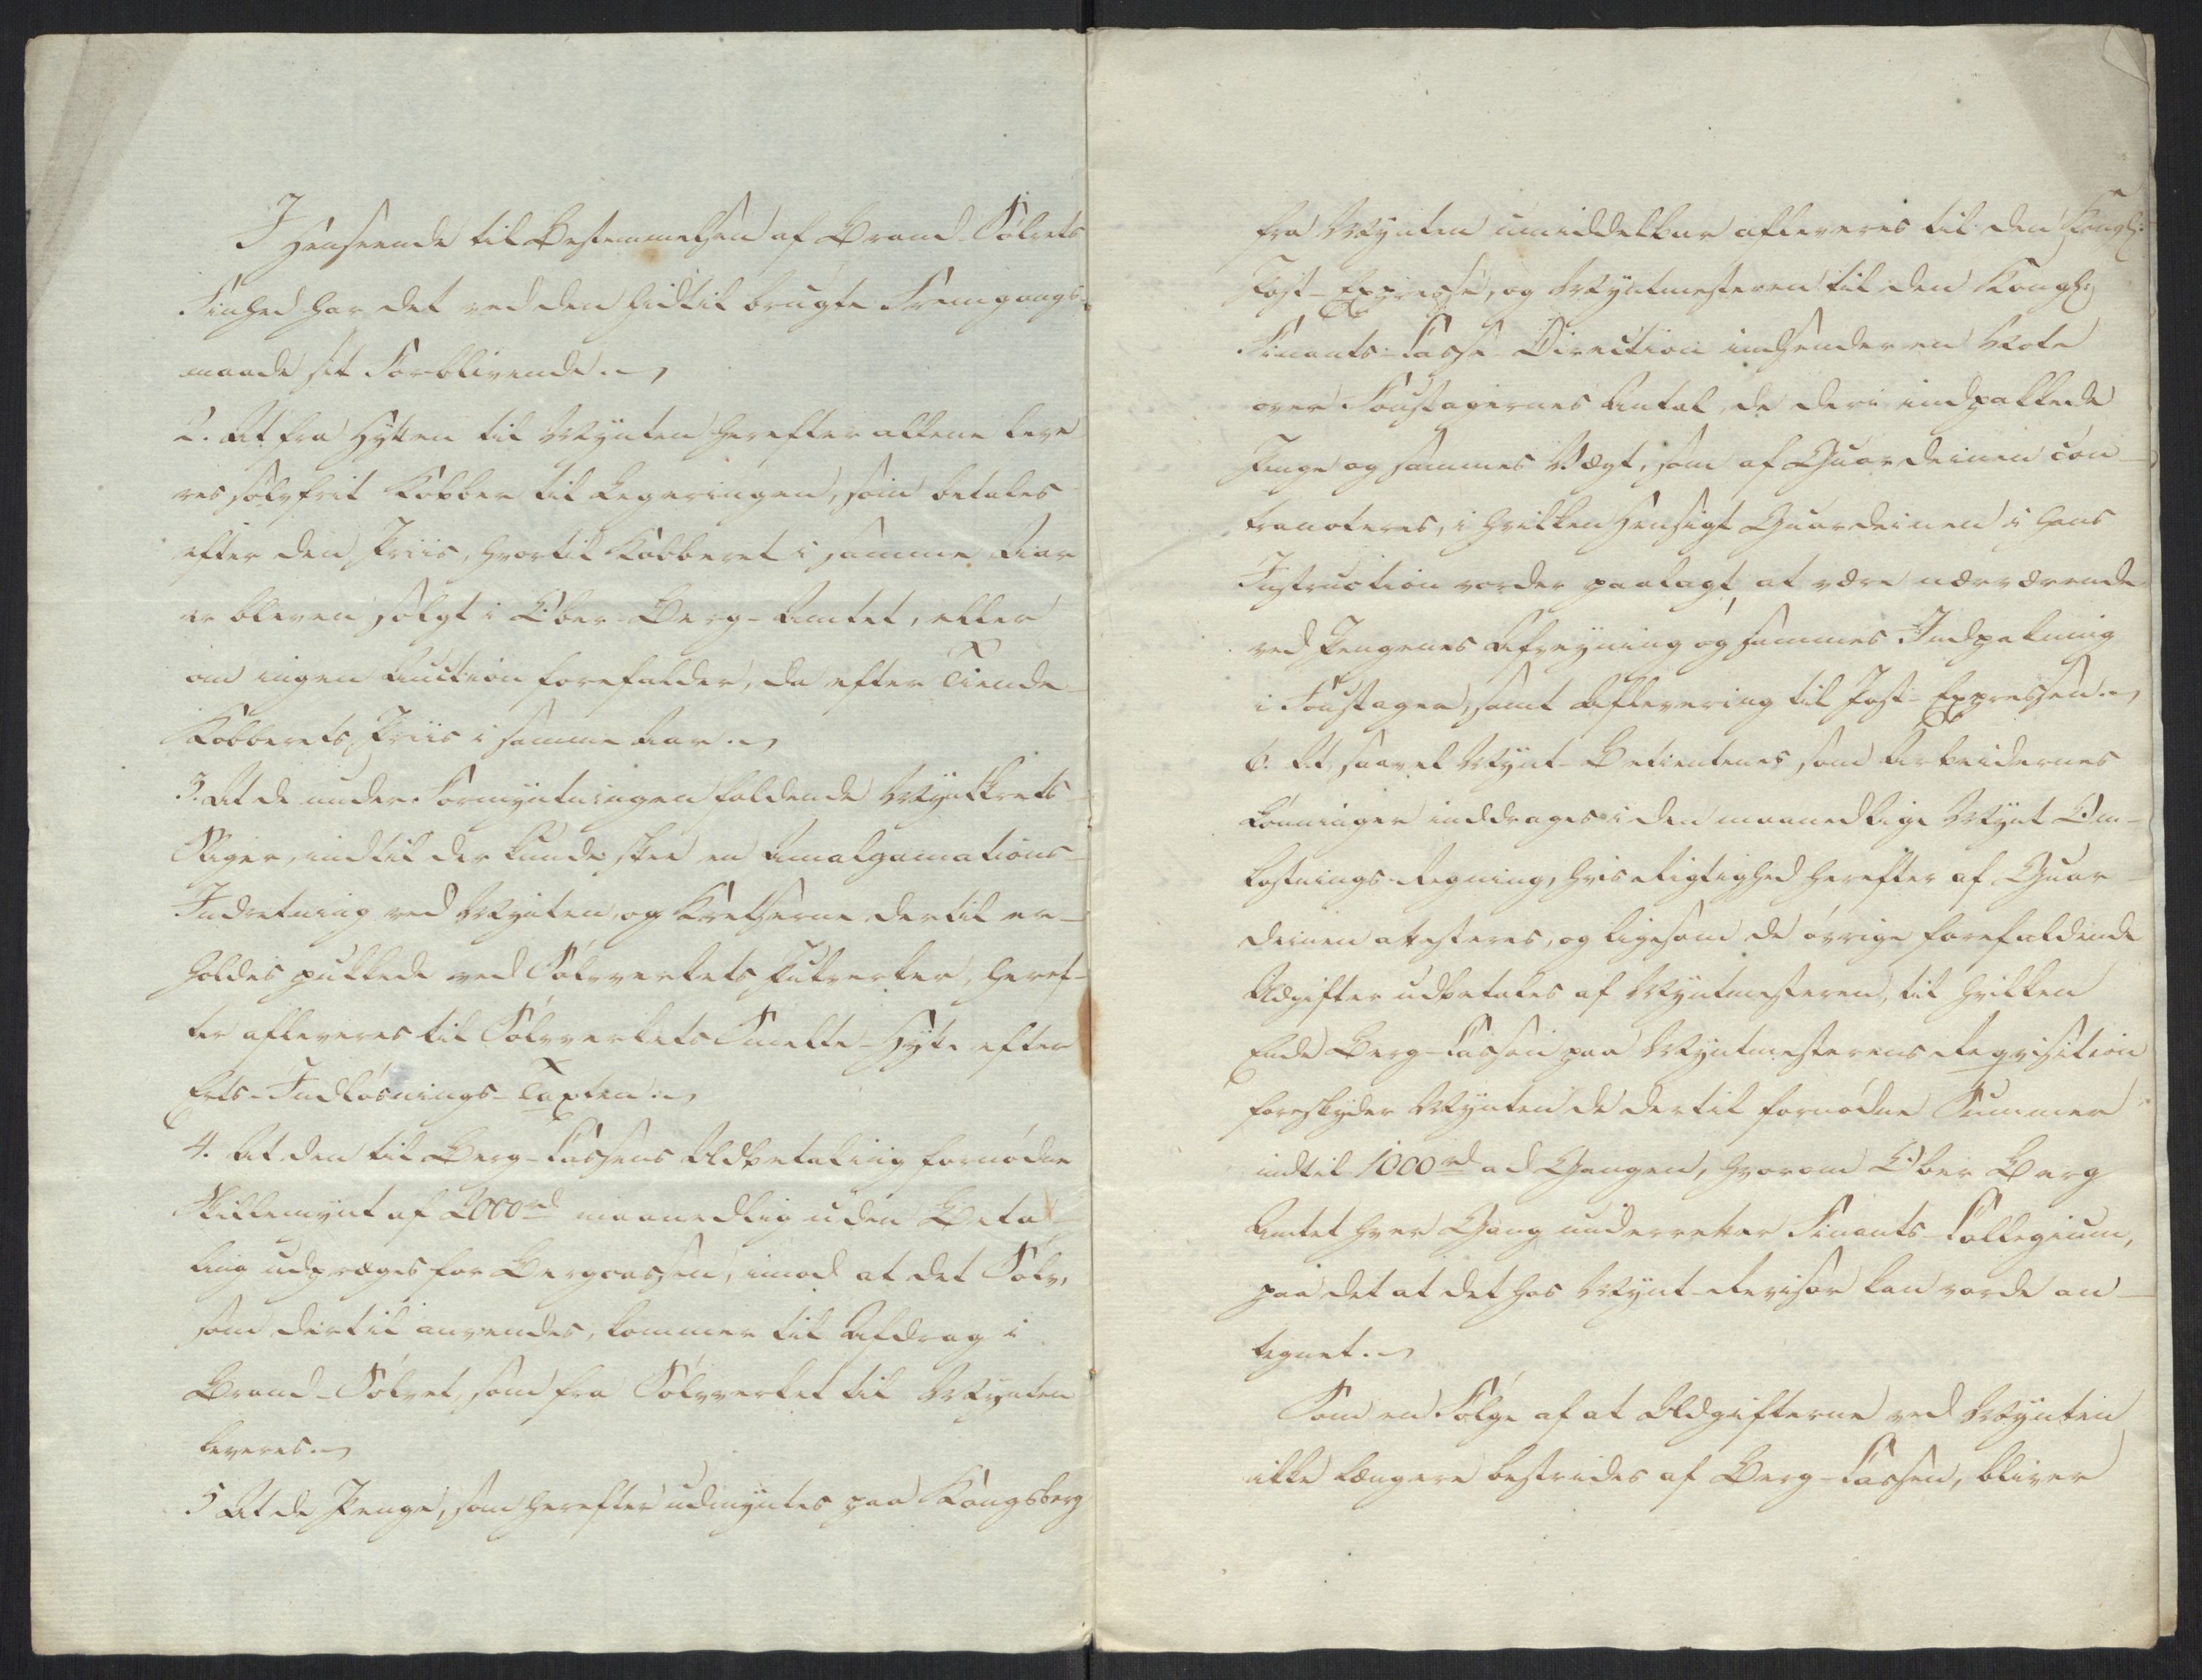 I Henseende til Bestemmelsen af Brand-Sølvets
Finhed har det ved den hidtil brugte Fremgangs-
maade sit Forblivende.
2. At fra Hytten til Mynten herefter allene leve
res sølvfrit Kobber til Legeringen, som betales
efter den Priis, hvortil Kobberet i samme Aar
er bleven solgt i Ober-Berg-Amtet, eller
om ingen Auction forefalder, da efter Tiende-
Kobberets Priis i samme Aar.
3. At de under Formyntningen faldende Myntkrets-
Sliger, indtil der kunde skee en Amalgamations-
Indretning ved Mynten, og Kretserne dertil er-
holdes pukkede ved Sølvverkets Pukverker, heref-
ter afleveres til Sølvverkets Smelte-Hytte efter
Erts-Indløsnings-Taxten.
4. At den til Berg-Cassens Udbetaling fornødne
Skillemynt af 2000 rd maanedlig uden Beta-
ling udpræges for Bergcassen, imod at det Sølv,
som dertil anvendes, kommer til Afdrag i
Brand-Sølvet, som fra Sølvverket til Mynten
leveres.
5 At de Penge, som herefter udmyntes paa Kongsberg
fra Mynten umiddelbar afleveres til den Kongl:
Post-Expresse, og Myntmesteren til den Kongl:
Finants-Casse Direction indsender en Note
over Foustagernes Antal, de deri indpakkede
Penge og sammes Vægt, som af Guardeinen con-
tranoteres, i hvilken Hensigt Guardeinen i hans
Instruction vorder paalagt, at være nærværende
ved Pengenes Afveyning og sammes Indpakning
i Foustager, samt Aflevering til Post-Expressen.
6. At saavel Mynt-Betientenes som Arbeidernes
Lønninger inddrages i den maanedlige Mynt Om-
kostnings-Regning, hvis Rigtighed herefter af Guar
deinen attesteres, og ligesom de øvrige forefaldende
Udgifter udbetales af Myntmesteren, til hvilken
Ende Berg-Cassen paa Myntmesterens Reqvisition
forskyder Mynten de dertil fornødne Summer
indtil 1000 rd ad Gangen, hvorom Ober Berg
Amtet hver Gang underretter Finants-Collegium,
paa det at det hos Mynt-Revisor kan vorde an-
tegnet.
Som en Følge af at Udgifterne ved Mynten
ikke længere bestrides af Berg-Cassen, bliver